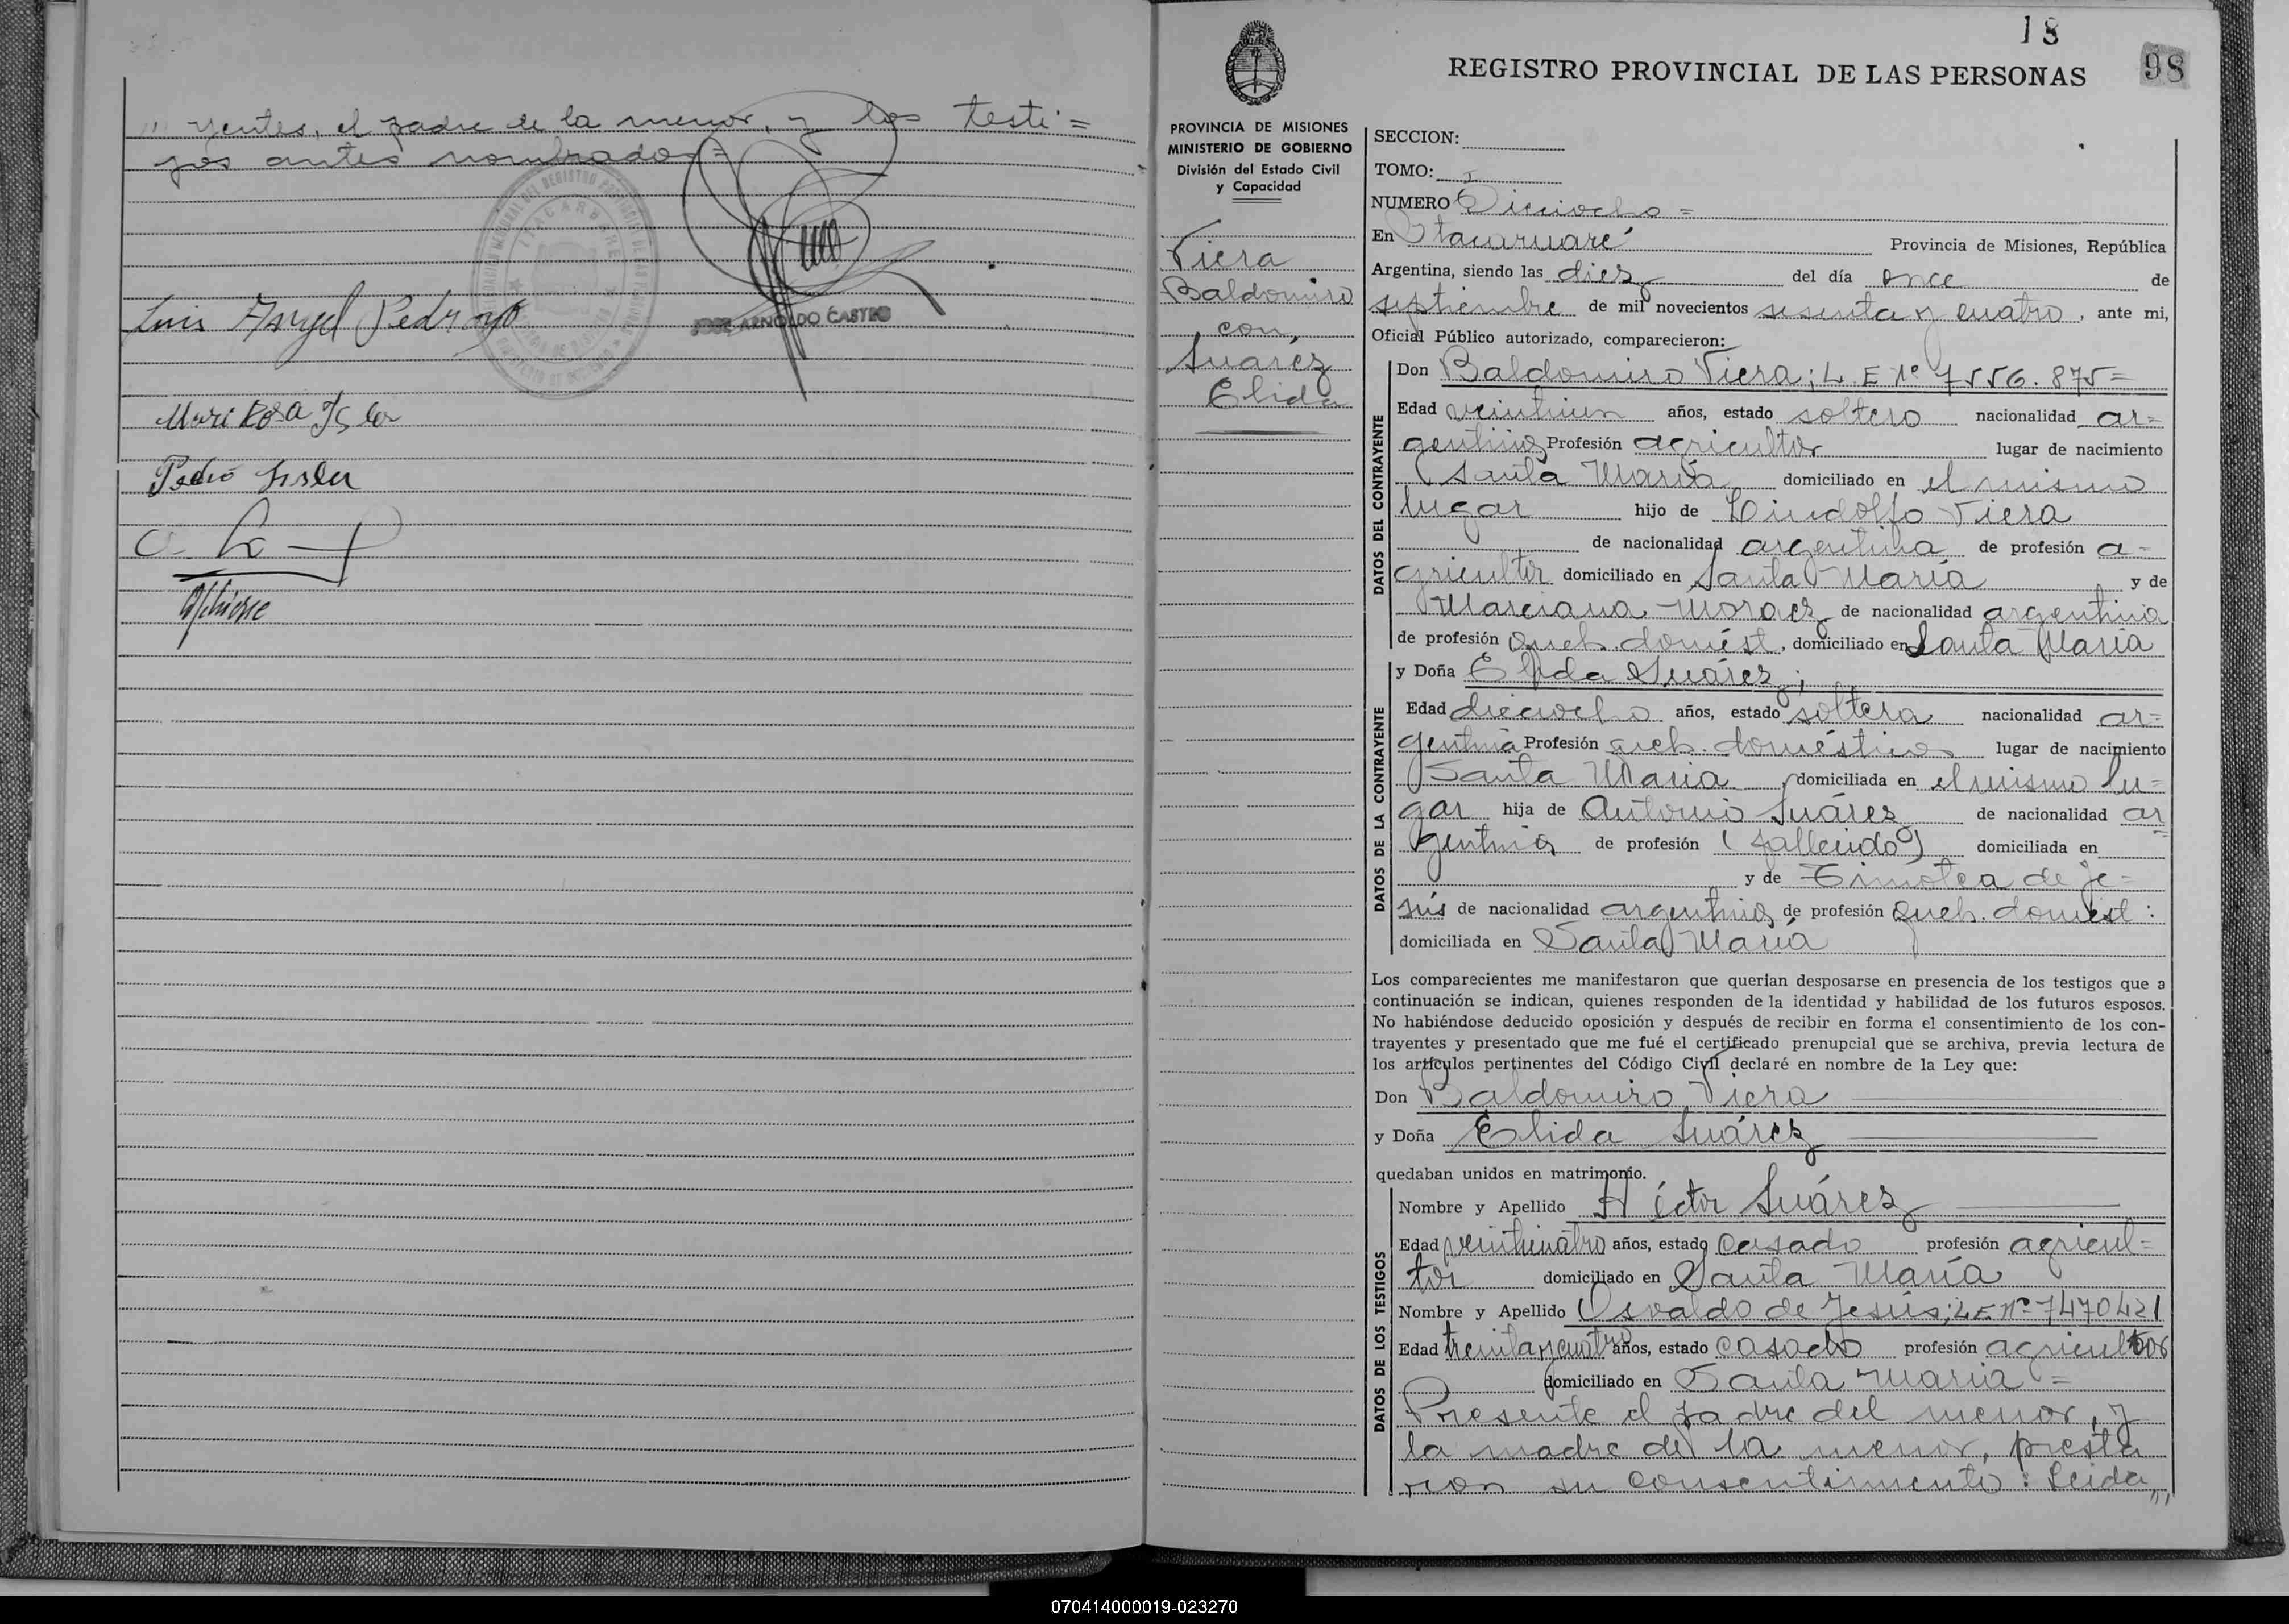 "" yentes, el padre de la menor, y los testi=
gos antes nombrados=
JOSE ARNOLDO CASTRO
Luis Angel Pedrozo
Pedro
18
98
REGISTRO PROVINCIAL DE LAS PERSONAS
PROVINCIA DE MISIONES
MINISTERIO DE GOBIERNO
División del Estado Civil
y Capacidad
Viera
Baldomiro
con
Suaréz
Elida
SECCION:
TOMO: I
NUMERO Dieciocho =
En Itacaruaré Provincia de Misiones, República
Argentina, siendo las diez del día once de
septiembre de mil novecientos sesenta y cuatro, ante mi,
Oficial Público autorizado, comparecieron:
DATOS DEL CONTRAYENTE
Don Baldomiro Viera; L. E Nº 7556.875=
Edad veintiun años, estado soltero nacionalidad ar=
gentina Profesión agricultor lugar de nacimiento
Santa María domiciliado en el mismo
lugar hijo de Lindolfo Viera
de nacionalidad argentina de profesión a=
gricultor domiciliado en Santa María y de
Marciana Moraez de nacionalidad argentina
de profesión queh. domést, domiciliado en Santa María
DATOS DE LA CONTRAYENTE
y Doña Elida Suárez;
Edad dieciocho años, estado soltera nacionalidad ar=
gentina Profesión queh. domésticos lugar de nacimiento
Santa Maria domiciliada en el mismo lu=
gar hija de Antonio Suárez de nacionalidad ar=
gentina de profesión (fallecido) domiciliada en
y de Timotea de Je=
sús de nacionalidad argentina de profesión queh. domést:
domiciliada en Santa María
Los comparecientes me manifestaron que querían desposarse en presencia de los testigos que a
continuación se indican, quienes responden de la identidad y habilidad de los futuros esposos.
No habiéndose deducido oposición y después de recibir en forma el consentimiento de los con-
trayentes y presentado que me fué el certificado prenupcial que se archiva, previa lectura de
los artículos pertinentes del Código Civil declaré en nombre de la Ley que:
Don Baldomiro Viera
y Doña Elida Suárez
quedaban unidos en matrimonio.
DATOS DE LOS TESTIGOS
Nombre y Apellido Héctor Suárez
Edad veinticuatro años, estado casado profesión agricul=
tor domiciliado en Santa María
Nombre y Apellido Osvaldo de Jesús; L E Nº 7470421
Edad treinta y cuatro años, estado casado profesión agricultor
domiciliado en Santa María =
Presente el padre del menor, y
la madre de la menor, presta
ron su consentimiento: Leida""
070414000019-023270